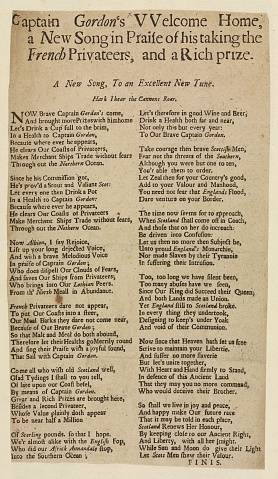 Captain Gordon's VVelcome Home,
a New Song in Praise of his taking the
French Privateers, and a Rich prize.
A New Song, To an Excellent New Tune.
Hark I hear the Cannons Roar,
NOW Brave Captain Gordon's come,
And brought more Prizes with him home
Let's Drink a Cup full to the brim,
In a Health to Captain Gordon:
Because where ever he appears,
He clears Our Coasts of Privateers,
Makes Merchant Ships Trade without fears
Through out the Northern Ocean.
Since he his Commission got,
He's prov'd a Stout and Valiant Scot:
Let every one then Drink a Pot
In a Health to Captain Gordon:
Because where ever he appears,
He clears Our Coasts of Privateers
Makes Merchant Ships Trade without fears,
Through out the Nothern Ocean.
Now Albian, I say Rejoice,
Lift up your long dejected Voice,
And with a brave Melodious Voice
In praise of Captain Gordon;
Who does dispell Our Clouds of Fears,
And saves Our Ships from Privateers,
Who brings into Our Lothian Peers.
From th' North Meall in Abundance.
French Privateers dare not appear,
To put Our Coasts into a steer,
Our Meal Barks they dare not come near,
Because of Out Brave Gordon;
So that Malt and Meal do both abound,
Therefore let their Health go Merrily round
And sing their Praise with a joyful sound,
That Sail with Captain Gordon.
Come all who wish old Scotland well,
Glad Tydings I shall to you tell,
Of late upon our Coast befel,
By means of Captain Gordon.
Great and Rich Prizes are brought here,
Besides a second Privateer,
Whose Value plainly doth appear
To be near half a Million
Of Sterling pounds. so that I hope.
We'r almost alike with the English Fop,
Who did our Africk Annandale stop,
Into the Southern Ocean;
Let's therefore in good Wine and Beer,
Drink a Health both far and near,
Not only this but every year:
To Our Brave Captain Gordon.
Take courage then brave Scottish Men,
Fear not the threats of the Southern,
Although you were but one to ten,
You'r able them to order.
Let Zeal then for your Country's good,
Add to your Valour and Manhood,
You need not fear that England's Flood,
Dare venture on your Border.
The time now seems for to approach,
When Scotland shall come off in Coach,
And those that on her do incroach:
Be driven into Confusion:
Let us then no more then Subject be,
Unto proud England's Monarchie,
Nor made Slaves by their Tyrannie
In suffering their Intrusion.
Too, too long we have silent been,
Too many abuses have we seen,
Since Our King did Succeed their Queen,
And both Lands made an Union.
For England still to Scotland broke.
In every thing they undertook,
Designing to keep's under Yoak
And void of their Communion.
Now since that Heaven hath set us free
Strive to maintain your Libertie.
And suffer no more slaverie
But let's unite together,
With Heart and Hand firmly to Stand,
In defence of this Ancient Land
That they may you no more command,
Who would deceive their Brother.
So shall we live in joy and peace,
And happy make Our future race
That it may be told in each place,
Scotland Renews Her Honour,
By keeping close to our Ancient Right,
And Liberty, with all her might.
While Sun and Moon do give their Light
Let Scots Men shew their Valour.
FINIS.